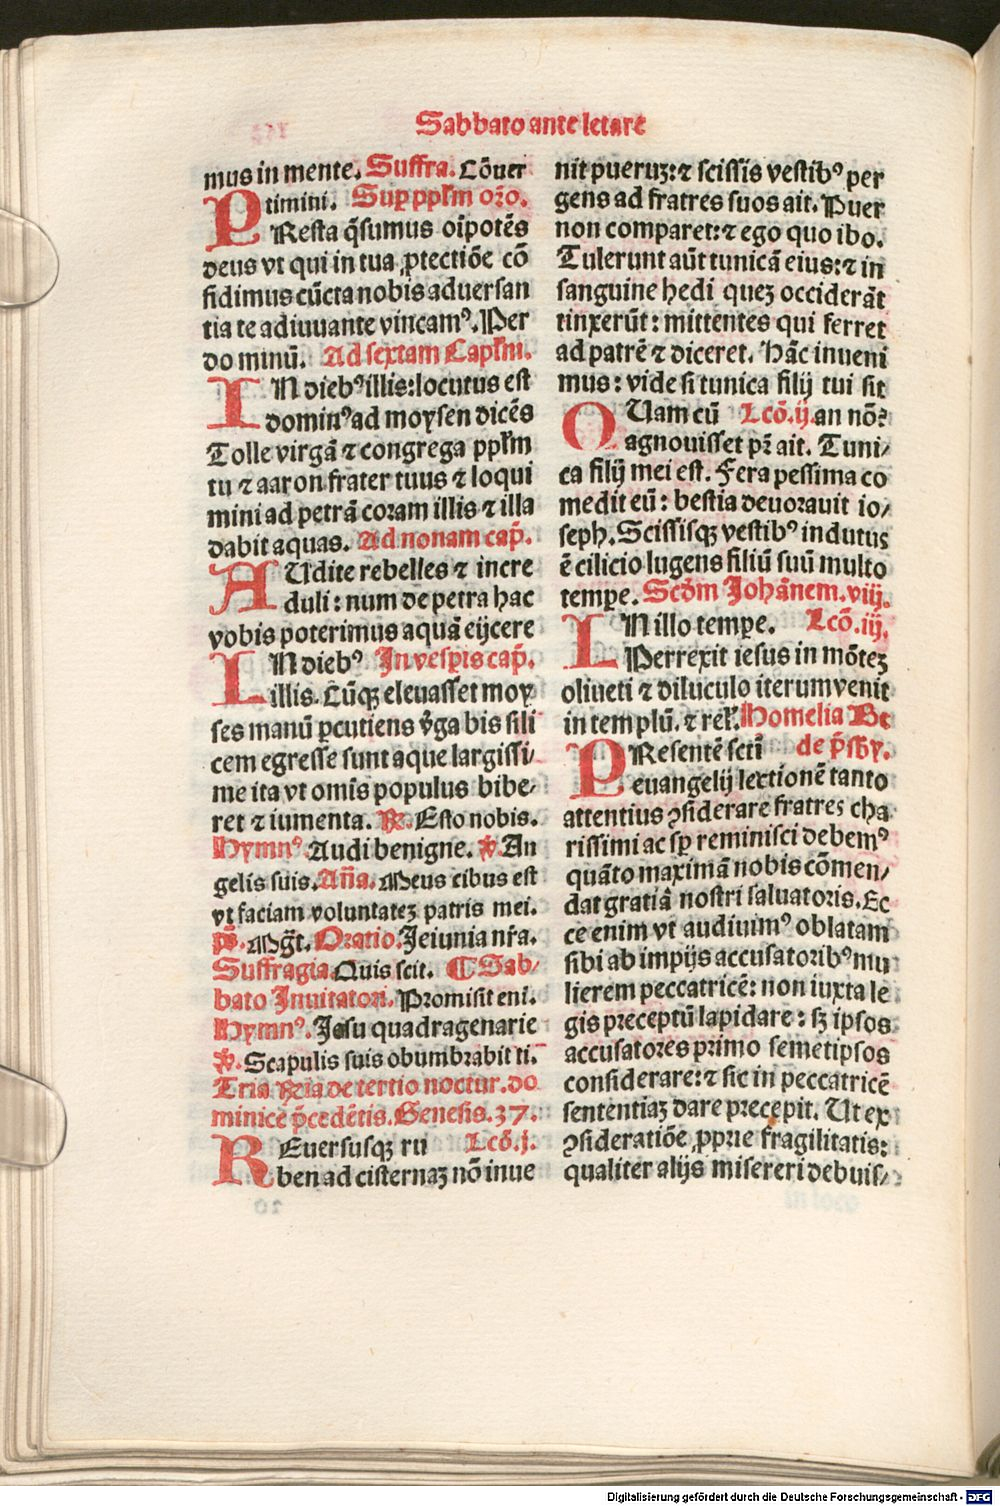 Sabbato ante letare
mus in mente. Suffra. Cōuer
timini. Sup ppl'm orō.
PResta q̄sumus oīpotēs
deus vt qui in tua ꝓtectiōe cō
fidimus cūcta nobis aduersan
tia te adiuuante vincamꝰ. Per
do minū. Ad sextam Capl'm.
IN diebꝰ illis: locutus est
dominꝰ ad moysen dicēs
Tolle virgā ⁊ congrega ppl'm
tu ⁊ aaron frater tuus ⁊ loqui
mini ad petrā coram illis ⁊ illa
dabit aquas. Ad nonam cap̄.
AUdite rebelles ⁊ incre
duli: num de petra hac
vobis poterimus aquā eijcere
IN diebꝰ In vesp̄is cap̄.
illis. Cūqꝫ eleuasset moy
ses manū ꝑcutiens v̄ga bis sili
cem egresse sunt aque largissi/
me ita vt omīs populus bibe/
ret ⁊ iumenta. ℟. Esto nobis.
Hymnꝰ. Audi benigne. ℣. An
gelis suis. Aña. Meus cibus est
vt faciam voluntateꝫ patris mei.
p̄s. Mḡt. Oratio. Jeiunia nr̄a.
Suffragia. Quis scit. ¶ Sab/
bato Inuitatori. Promisit eni.
Hymnꝰ. Jesu quadragenarie
℣. Scapulis suis obumbrabit ti.
Tria ℟ia de tertio noctur. do
minice p̄cedētis. Genesis. 37.
REuersusqꝫ ru Lcō. j.
ben ad cisternaꝫ nō inue
nit pueruꝫ: ⁊ scissis vestibꝰ per
gens ad fratres suos ait. Puer
non comparet: ⁊ ego quo ibo.
Tulerunt aūt tunicā eius: ⁊ in
sanguine hedi queꝫ occiderāt
tinxerūt: mittentes qui ferret
ad patrē ⁊ diceret. Hāc inueni
mus: vide si tunica filij tui sit
QUam cū Lcō. ij. an nō?
agnouisset pr̄ ait. Tuni/
ca filij mei est. Fera pessima co
medit eū: bestia deuorauit io/
seph. Scissisqꝫ vestibꝰ indutus
ē cilicio lugens filiū suū multo
tempꝛe. Scd̄m Johānem. viij.
IN illo tempꝛe. Lcō. iij.
Perrexit iesus in mōteꝫ
oliueti ⁊ diluculo iterum venit
in templū. ⁊ rel'. Homelia Be
PResentē scti de p̄sby.
euangelij lectionē tanto
attentius ꝯsiderare fratres cha
rissimi ac sꝑ reminisci debemꝰ
quāto maximā nobis cōmen/
dat gratiā nostri saluatoris. Ec
ce enim vt audiuimꝰ oblatam
sibi ab impijs accusatoribꝰ mu
lierem peccatricē: non iuxta le
gis preceptū lapidare: sꝫ ipsos
accusatores primo semetipsos
considerare: ⁊ sic in peccatricē
sententiaꝫ dare precepit. Ut ex
ꝯsideratiōe ꝓprie fragilitatis:
qualiter alijs misereri debuis/
Digitalisierung gefördert durch die Deutsche Forschungsgemeinschaft - DFG